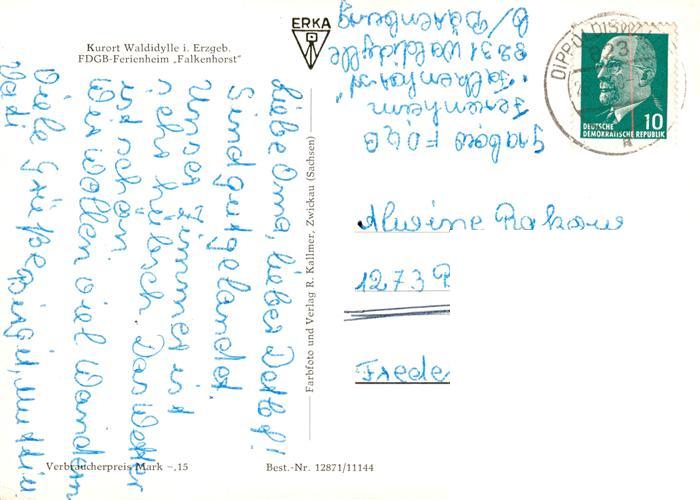 Kurort Waldidylle i. Erzgeb.
FDGB-Ferienheim „Falkenhorst"
ERKA
Liebe Oma, lieber Detlef!
Sind gut gelandet
Unser Zimmer ist
sehr hübsch. Das Wetter
ist schön
Wir wollen viel Wandern
Viele Grüße Birgit, Mutti u
Vati
Farbfoto und Verlag R. Kallmer, Zwickau (Sachsen)
Grabow FDGB
Ferienheim
"Falkenhorst"
8231 Waldidylle
b/ Bärenburg
DIPPOLDISW
DEUTSCHE
DEMOKRATISCHE REPUBLIK
10
Alwine Rakow
1273 P
Frede
Verbraucherpreis Mark –,15
Best.-Nr. 12871/11144